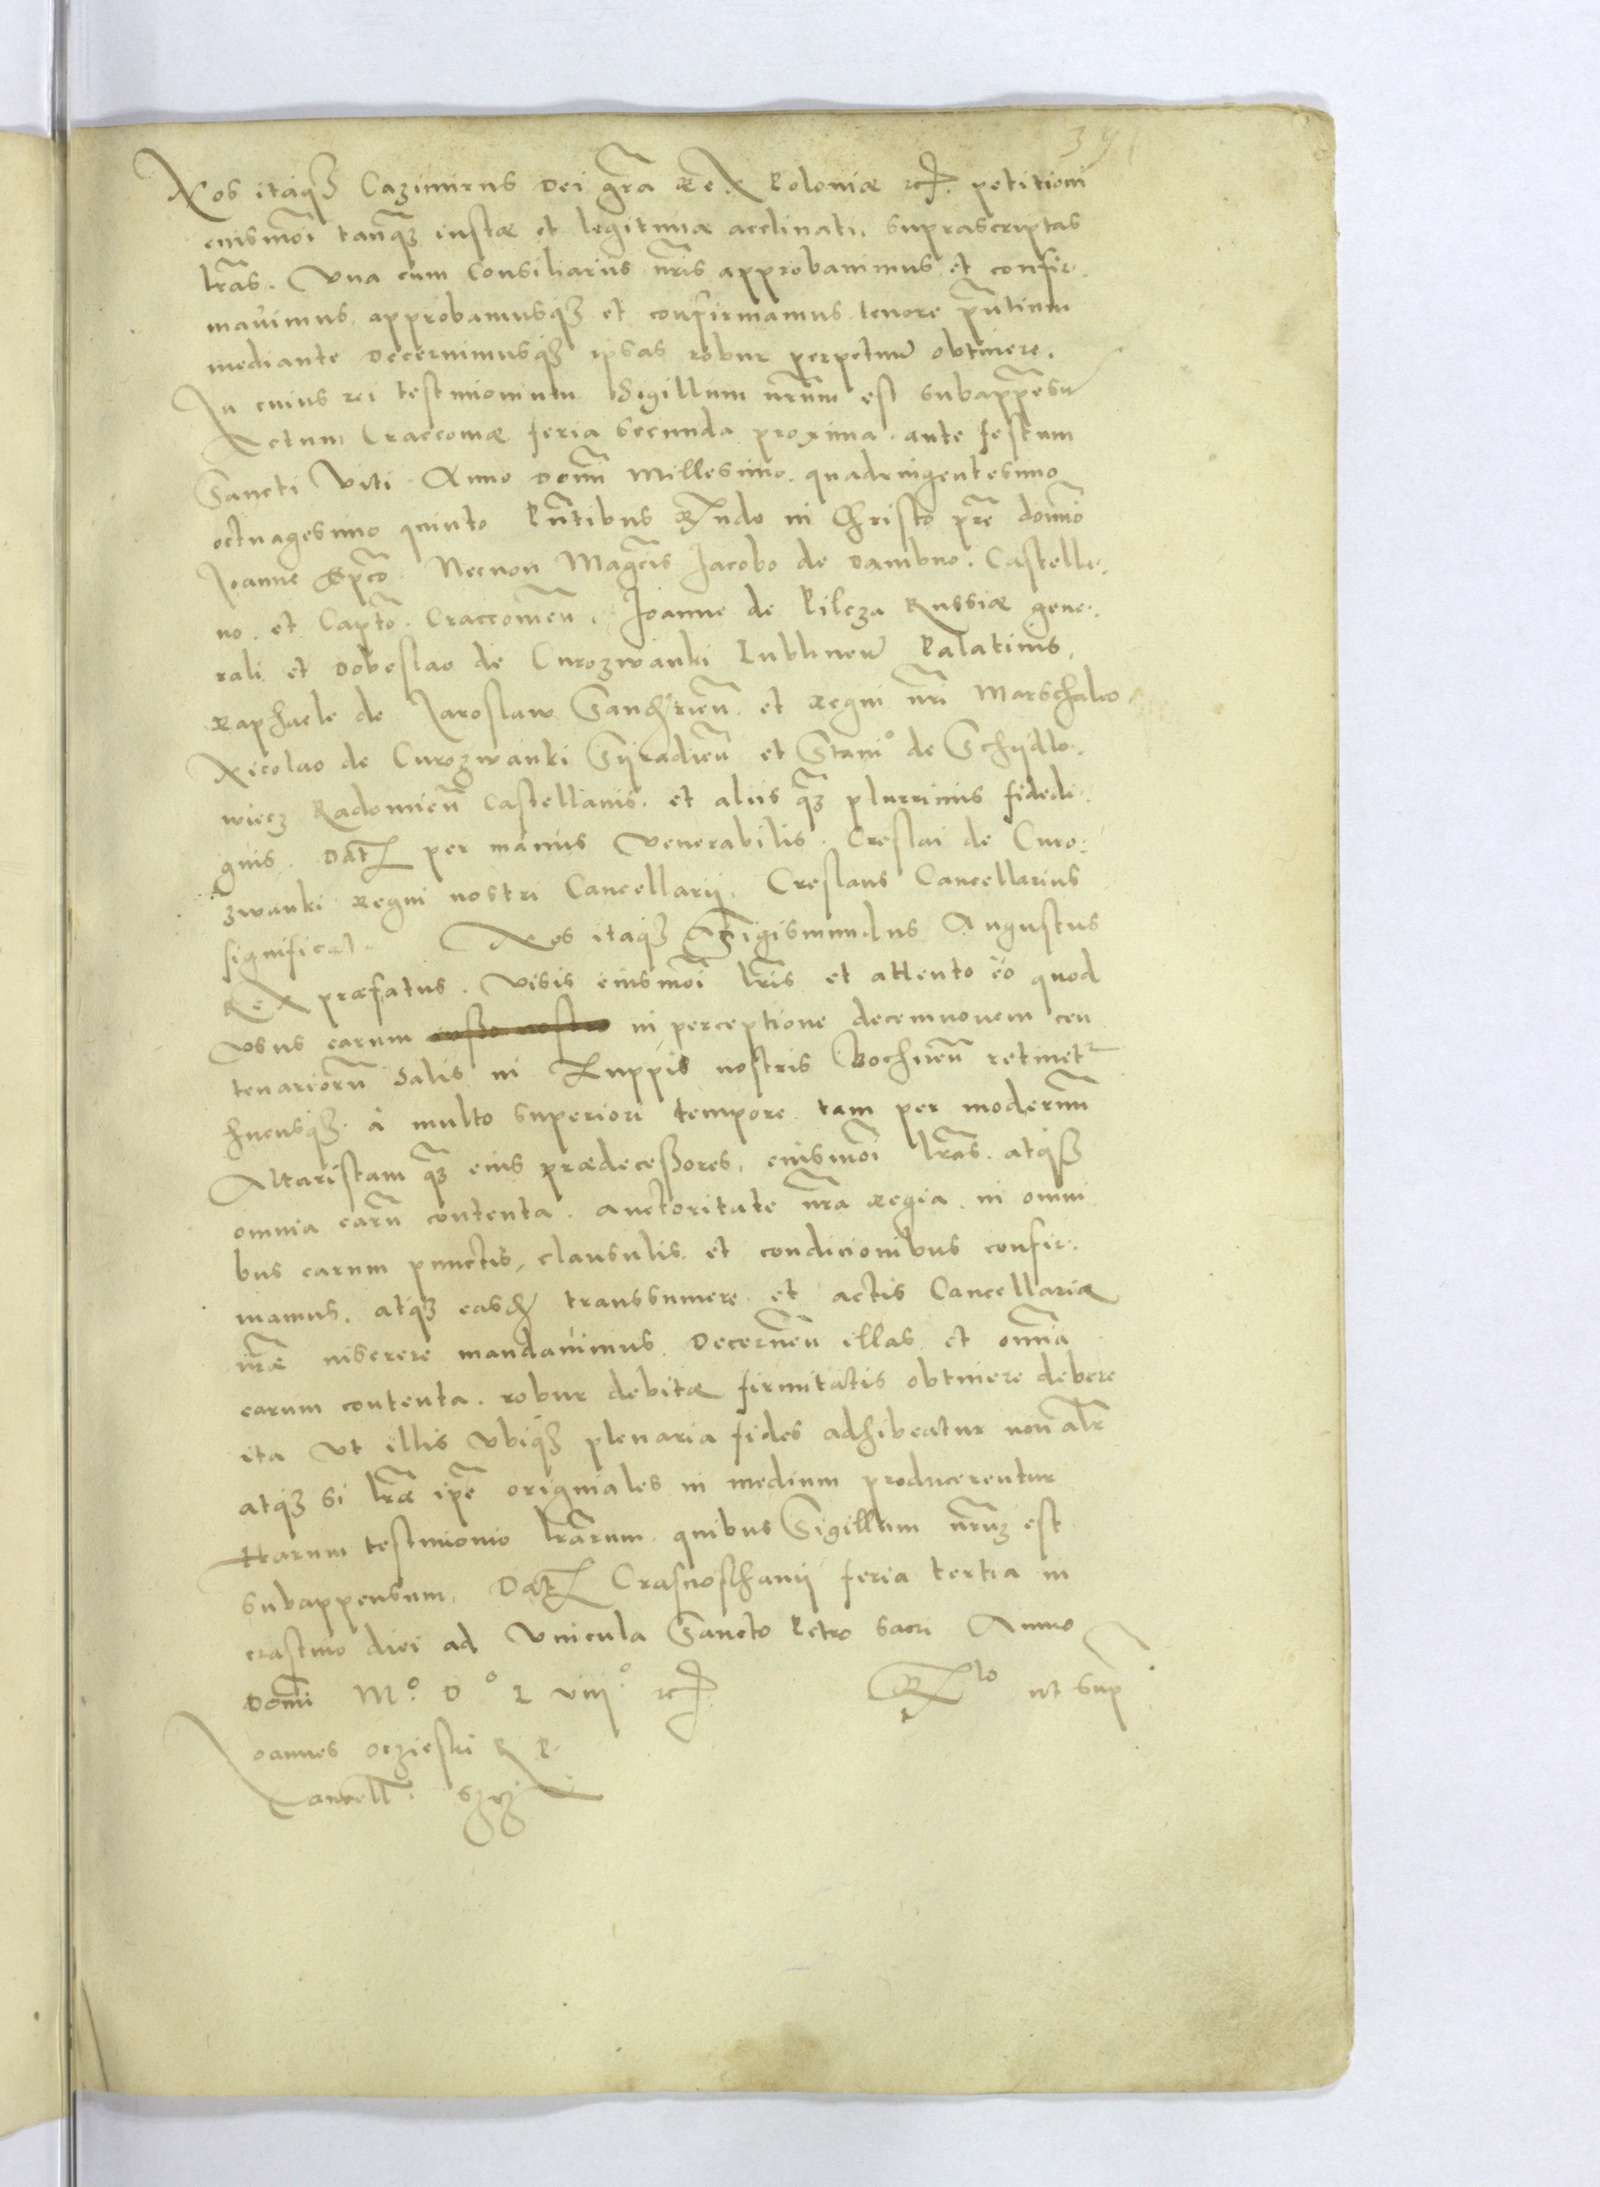 Nos itaq3 Cazimirus Dei gra Rex Poloniæ etc. petitioni
eiusmoi tanq3 iustæ et legitimæ acclinati, suprascriptas
lras. Una cum Consiliariis nris approbavimus et confir-
mavimus, approbamusq3 et confirmamus tenore pntium
mediante Decernimusq3 ipsas robur perpetuu obtinere.
In cuius rei testimonium Sigillum nrum est subappensu
Actum Craccoviæ feria secunda proxima ante festum
Sancti Viti Anno Domi Millesimo quadringentesimo
octuagesimo quinto Pntibus Rndo in Christo pre domino
Joanne Epco Necnon Magcis Jacobo de Dambno Castella-
no et Capto Craccovien, Joanne de Pilcza Russiæ gene-
rali et Dobeslao de Curozwanki Lublineñ Palatinis,
Raphaele de Jaroslaw Sandrien et Regni nri Marschalco
Nicolao de Curozwanki Syradien et Stanio de Schydlo-
wiecz Radomien Castellanis, et aliis q3 plurimis fidedi-
gnis. Dat per manus Venerabilis Creslai de Curo-
zwanki Regni nostri Cancellarij, Creslaus Cancellarius
significat. Nos itaq3 Sigismundus Augustus
Rex præfatus, visis eiusmoi lris et attento eo quod
usus earum in perceptione decemnovem cen
tenarioru Salis in Zuppis nostris Bochnen retinetr
hucusq3 à multo superiori tempore tam per modernu
Altaristam q3 eius prædecessores, eiusmoi lras atq3
omnia earu contenta, auctoritate nra Regia in omni
bus earum punctis, clausulis et condicionibus confir-
mamus, atq3 easd transsumere et actis Cancellariæ
nræ inserere mandavimus. Decernen illas et omnia
earum contenta robur debitæ firmitatis obtinere debere
ita ut illis ubiq3 plenaria fides adhibeatur non alr
atq3 si lræ ipe originales in medium producerentur
Harum testimonio lrarum quibus Sigillum nru3 est
subappensum. Dat Crasnosthavij feria tertia in
crastino diei ad Vincula Sancto Petro sacri Anno
Domi Mo Do L viijo etc. Rlo ut sup
Joannes Oczieski R P
Cancell. sszt